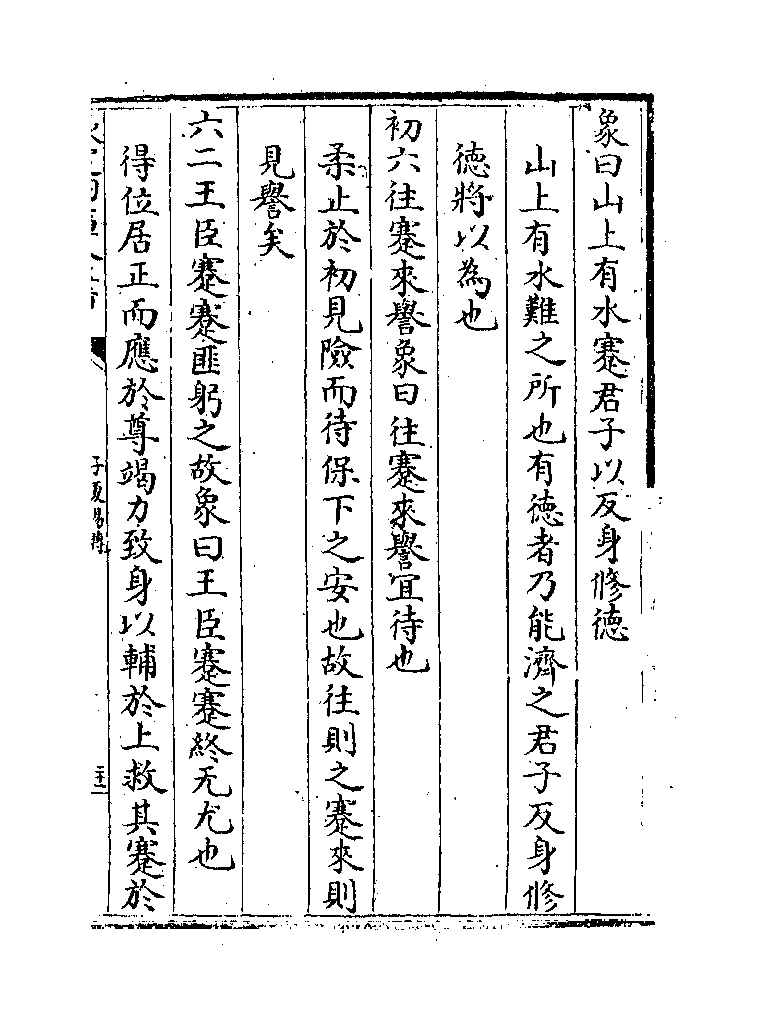 象曰山上有水蹇君子以反身修徳
山上有水難之所也有徳者乃能濟之君子反身修
徳將以為也
初六往蹇來譽象曰往蹇來譽宜待也
柔止於初見險而待保下之安也故往則之蹇來則
見譽矣
六二王臣蹇蹇匪躬之故象曰王臣蹇蹇終无尤也
得位居正而應於尊竭力致身以輔於上救其蹇於
子夏易傳